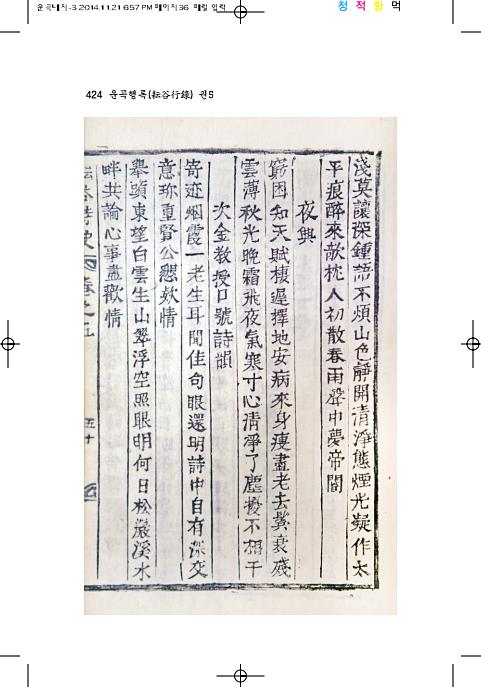 운곡대지-3 2014.11.21 6:57 PM 페이지36 매일 입력
청 적 황 먹
424 운곡행록(耘谷行錄) 권5
淺莫讓深鍾語不煩山色靜開清淨態煙光凝作太
平痕醉來欹枕人初散春雨聲中夢帝閽
夜興
窮因知天賦棲遲擇地安病來身瘦盡老去鬢衰殘
雲薄秋光晚霜飛夜氣寒寸心清淨了塵擾不相干
次金敎授口號詩韻
竒迹烟霞一老生耳聞佳句眼還明詩中自有深交
意珎重賢公懇欵情
擧頭東望白雲生山翠浮空照眼明何日松巖溪水
畔共論心事盡歡情
耘谷詩史 卷之五 五十